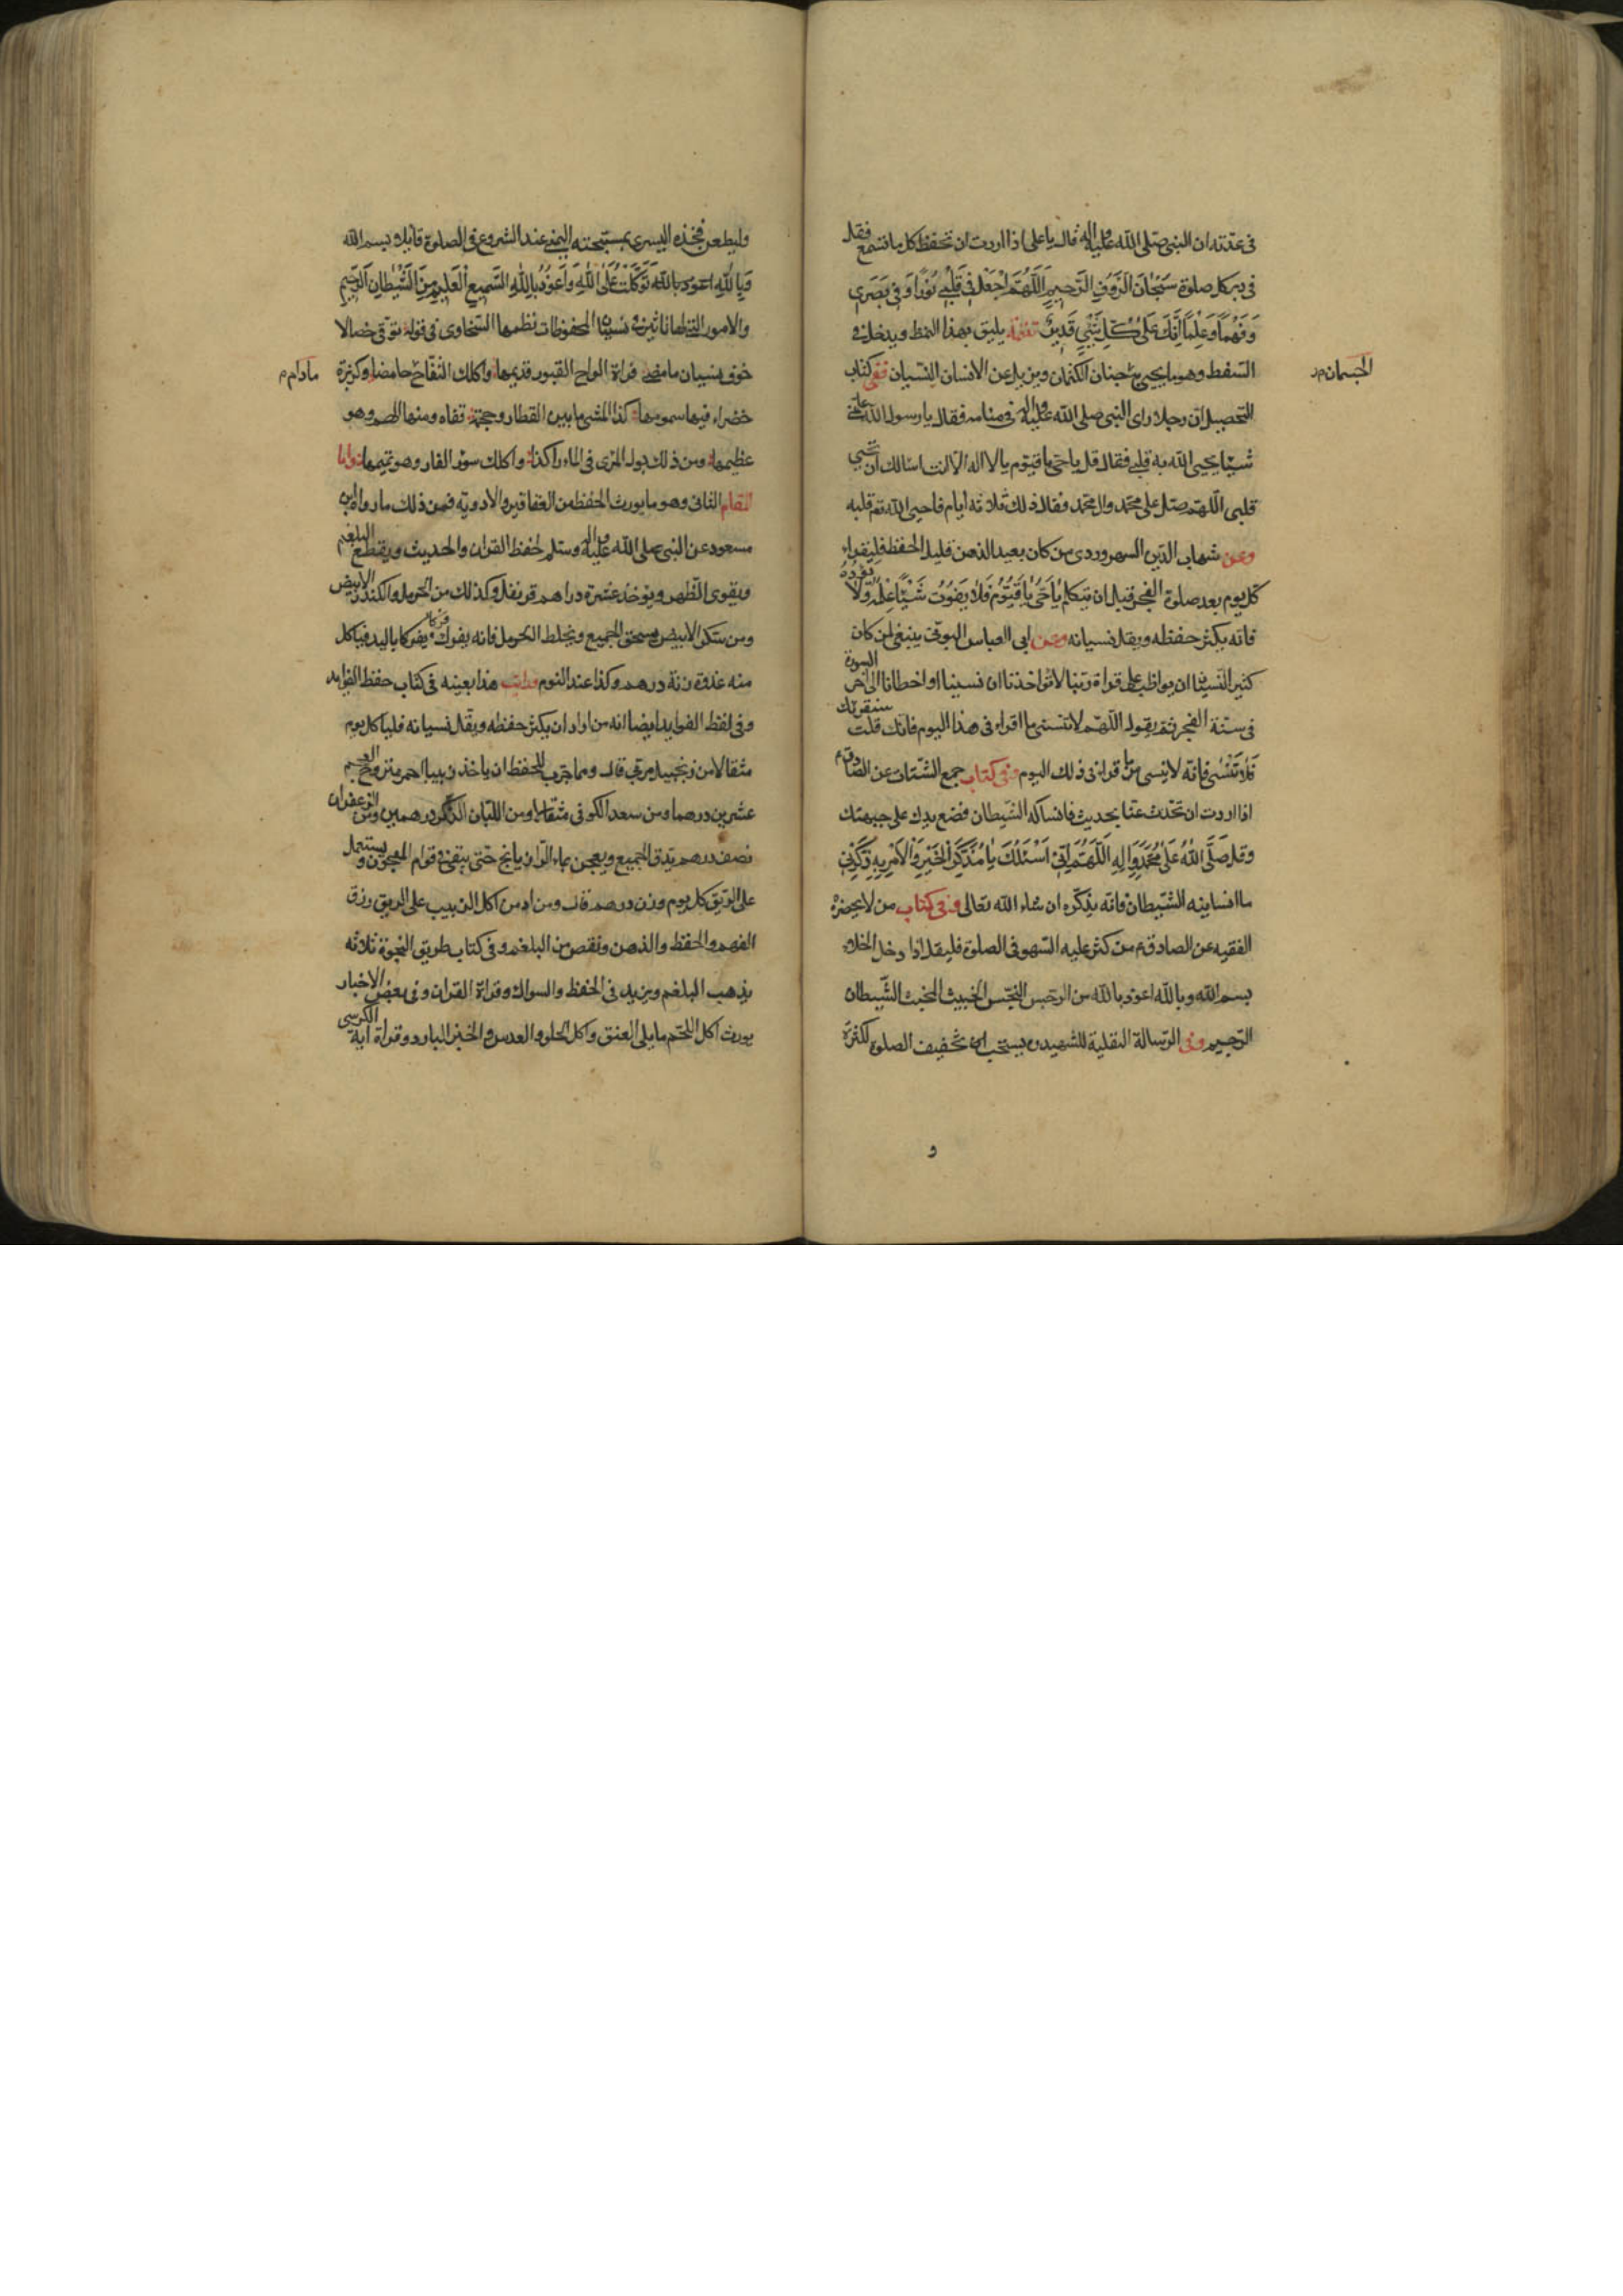 فى عدّته ان النبى صلى الله عليه واله قال يا على اذا اردت ان تحفظ كل ما تسمع فقل
فى دبر كل صلوة سُبْحَانَ الرَّؤفِ الرَّحِيمِ اَللّهُمَّ اجْعَلْ فى قَلْبى نُورًا وَفى بَصَرى
وَفَهْمًا وَعِلْمًا اِنَّكَ عَلى كُلِّ شَيْىٍ قَديرٌ تتمّة يليق بهذا النمط ويدخل فى
السّفط وهو ما يحيى جنان الكتمان ويزيل عن الانسان النّسيان ففى كتاب
الجسمان م ر
التحصيل ان رجلا راى النبى صلى الله عليه واله فى منامه فقال يا رسول الله علّمنى
شيئا يحيى الله به قلبى فقال قل يا حى يا قيّوم يا لا اله الا انت اسالك ان تحيى
قلبى اللّهم صل على محمّد وال محمّد فقال ذلك ثلاثة ايام فاحيى الله تع قلبه
وعن شهاب الدّين السهروردى من كان بعيد الذهن قليل الحفظ فليقراء
كل يوم بعد صلوة الفجر قبل ان يتكلم يَاحَىُّ يَاقَيُّومُ فَلا يَفُوتُ شَيْئًا عِلْمُهُ وَلا يَؤُدُهُ
فانه يكثر حفظه ويقل نسيانه وعن ابى العباس البونى ينبغى لمن كان
كثير النسيان ان يواظب على قراة ربنا لا تؤاخذنا ان نسينا او اخطانا الى آخر السورة
فى سنّة الفجر ثم يقول اللّهم لا تنسنى ما اقراء فى هذا اليوم فانك قلت سنقرئك
فَلا تَنْسى فانّه لا ينسى ما قراء فى ذلك اليوم وفى كتاب جمع الشّتات عن الصّادق ع
اذا اردت ان تحدّث عنّا بحديث فانساكه الشّيطان فضع يدك على جبهتك
وقل صَلَّى اللهُ عَلى مُحَمَّدٍ وَالِهِ اَللّهُمَّ اِنّى اَسْئَلُكَ يا مُذَكِّرَ الْخَيْرِ وَالْاٰمِرَ بِهِ ذَكِّرْنى
ما انسانيه الشّيطان فانه يذكّره ان شاء الله تعالى وفى كتاب من لا يحضره
الفقيه عن الصادق ع من كثر عليه السّهو فى الصلوة فليقل اذا دخل الخلاء
بسم الله وبالله اعوذ بالله من الرجس النّجس الخبيث المخبث الشّيطان
الرّجيم وفى الرّسالة النفلية للشهيد ره يستحب تخفيف الصلوة لكثرة
و
وليطعن فخذه اليسرى بمسبّحته اليمنى عند الشروع فى الصلوة قائلا بسم الله
وَبِاللهِ اعوذ بالله تَوَكَّلْتُ عَلَى اللهِ وَاَعُوذُ بِاللهِ السَّميعِ الْعَليمِ مِنَ الشَّيْطَانِ الرَّجيمِ
والامور التى لها تاثير فى نسيان المحفوظات نظمها السّخاوى فى قوله توقّ خصالا
خوف نسيان ما مضى قراءة الواح القبور قديمها واكلك التّفّاح حامضا وكزبرة
مادام م
خضراء فيها سمومها كذا المشى ما بين القطار وحجمة قفاه ومنها الهم وهو
عظيمها ومن ذلك بول المرء فى الماء راكدا واكلك سؤر الفار وهو تميمها وامّا
المقام الثانى وهو ما يورث الحفظ من العقاقير والادوية فمن ذلك ما رواه ابن
مسعود عن النبى صلى الله عليه واله وسلم لحفظ القران والحديث ويقطع البلغم
ويقوى الظهر ويؤخذ عشرة دراهم قرنفل وكذلك من الحرمل والكندر الابيض
ومن سكر الابيض يسحق الجميع ويخلط الحرمل فانه يفرك فركا باليد فياكل
منه غدوة زنة درهم وكذا عند النوم ورايت هذا بعينه فى كتاب حفظ الفوايد
وفى لفظ الفوايد ايضا انه من اراد ان يكثر حفظه ويقل نسيانه فلياكل كل يوم
مثقالا من زنجبيل مربى قال ومما جرّب للحفظ ان ياخذ زبيبا احمر منزوع العجم
عشرين درهما ومن سعد الكوفى مثقالا ومن اللبان الذكر درهمين ومن الزعفران
نصف درهم يدق الجميع ويعجن بماء الرازيانج حتى يبقى فى قوام المعجون ويستعمل
على الريق كل يوم وزن درهم قال ومن ادمن اكل الزبيب على الريق رزق
الفهم والحفظ والذهن ونقص من البلغم وفى كتاب طريق النجاة ثلاثة
يذهب البلغم ويزيد فى الحفظ والسواك وقراة القران وفى بعض الاخبار
يورث اكل اللحم ما يلى العنق واكل الحلو والعدس والخبز البارد وقراة اية الكرسى